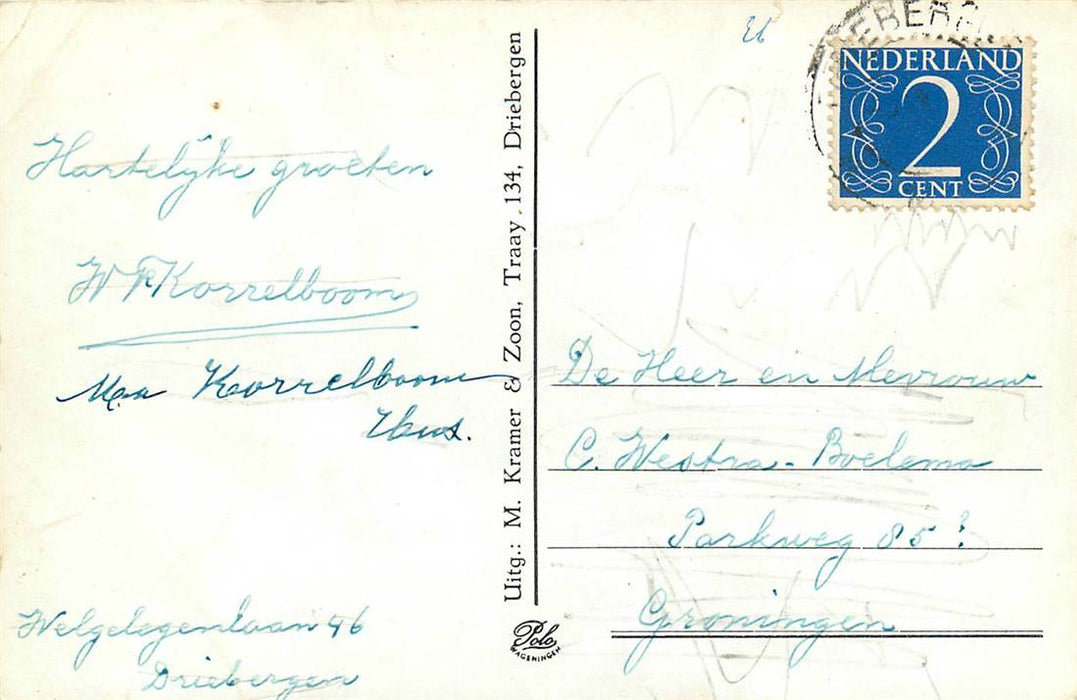 Hartelijke groeten
W F Korrelboom
Korrelboom
Welgelegenlaan 46
Driebergen
Uitg.: M. Kramer & Zoon, Traay 134, Driebergen
Polo
WAGENINGEN
EBERG
NEDERLAND
2
CENT
De Heer en Mevrouw
C. Westra - Boelema
Parkweg 85
Groningen